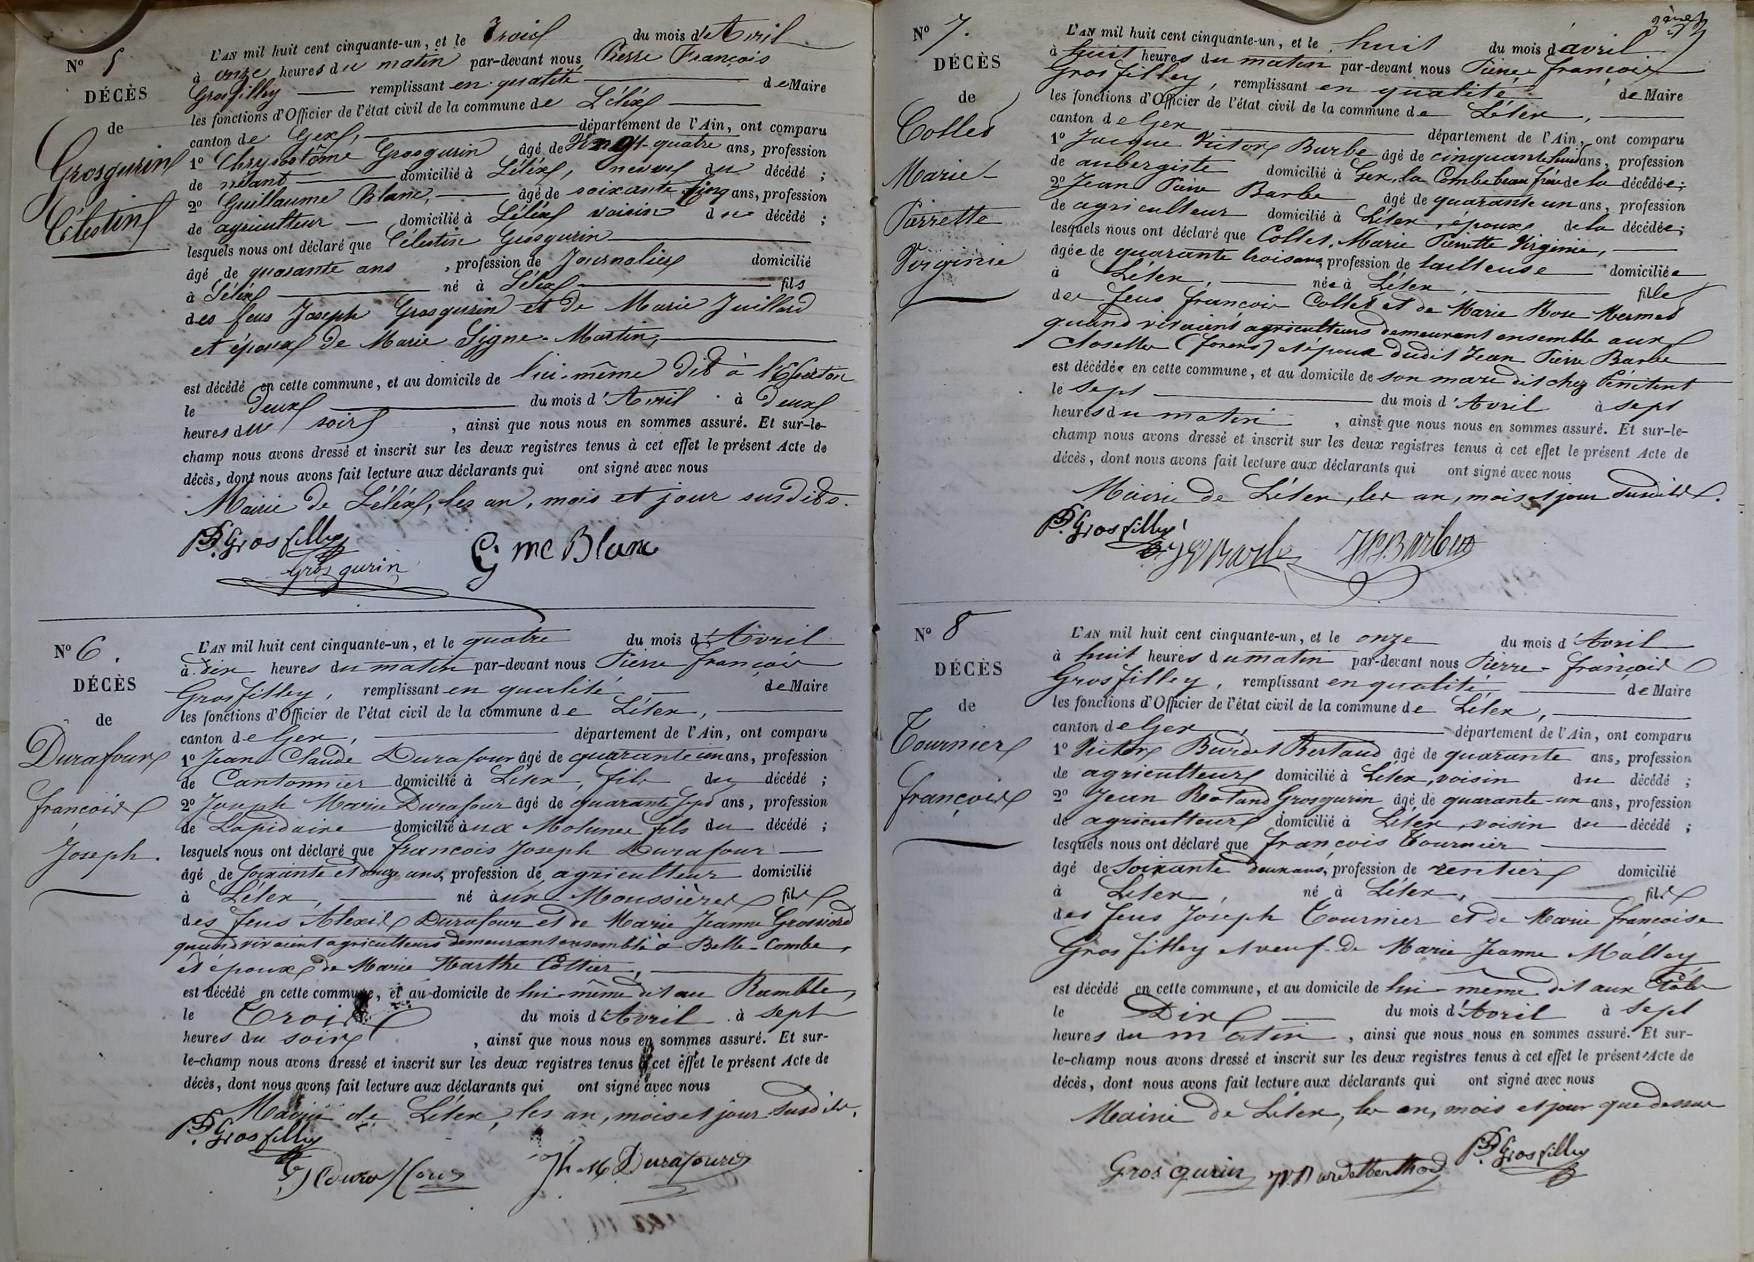 N° 5
DÉCÈS
de
Grosgurin
Célestin
L'AN mil huit cent cinquante-un, et le Trois du mois d'Avril
à onze heures du matin par-devant nous Pierre François
Grosfilley remplissant en qualité de Maire
les fonctions d'Officier de l'état civil de la commune de Lélex
canton de Gex, département de l'Ain, ont comparu
1° Chrysostôme Grosgurin âgé de quatre ans, profession
de néant domicilié à Lélex, neveu du décédé ;
2° Guillaume Blanc, âgé de soixante cinq ans, profession
de agriculteur domicilié à Lélex voisin du décédé ;
lesquels nous ont déclaré que Célestin Grosgurin
âgé de quarante ans , profession de Journalier domicilié
à Lélex né à Lélex fils
des feus Joseph Grosgurin et de Marie Juillard
et époux de Marie Ligne-Martin,
est décédé en cette commune, et au domicile de lui-même dit à
le deux du mois d'Avril à deux
heures du soir , ainsi que nous nous en sommes assuré. Et sur-le-
champ nous avons dressé et inscrit sur les deux registres tenus à cet effet le présent Acte de
décès, dont nous avons fait lecture aux déclarants qui ont signé avec nous
Mairie de Lélex, les an, mois et jour susdits.
P.F. Grosfilley
Grosgurin
Gme Blanc
N° 6.
DÉCÈS
de
Durafour
François
Joseph.
L'AN mil huit cent cinquante-un, et le quatre du mois d'Avril
à dix heures du matin par-devant nous Pierre François
Grosfilley, remplissant en qualité de Maire
les fonctions d'Officier de l'état civil de la commune de Lélex,
canton de Gex, département de l'Ain, ont comparu
1° Jean Claude Durafour âgé de quarante un ans, profession
de Cantonnier domicilié à Lélex, fils du décédé ;
2° Joseph Marie Durafour âgé de quarante ans, profession
de Lapidaire domicilié aux Molunes fils du décédé ;
lesquels nous ont déclaré que François Joseph Durafour
âgé de soixante et onze ans, profession de agriculteur domicilié
à Lélex, né aux Moussières fils
des feus Alexis Durafour et de Marie Jeanne Grossiord
quand vivaient agriculteurs demeurant ensemble à Belle-Combe,
et époux de Marie Marthe Cottier,
est décédé en cette commune, et au domicile de lui-même dit au Ramble,
le Trois du mois d'Avril à sept
heures du soir , ainsi que nous nous en sommes assuré. Et sur-
le-champ nous avons dressé et inscrit sur les deux registres tenus à cet effet le présent Acte de
décès, dont nous avons fait lecture aux déclarants qui ont signé avec nous
Mairie de Lélex, les an, mois et jour susdits.
P.F. Grosfilley
Jh M Durafour
N° 7.
DÉCÈS
de
Collet
Marie
Pierrette
Virginie
L'AN mil huit cent cinquante-un, et le huit du mois d'avril
à huit heures du matin par-devant nous Pierre François
Grosfilley, remplissant en qualité de Maire
les fonctions d'Officier de l'état civil de la commune de Lélex,
canton de Gex département de l'Ain, ont comparu
1° Jacque Victor Barbe âgé de cinquante huit ans, profession
de aubergiste domicilié à Gex, la Combe beau frère de la décédée ;
2° Jean Pierre Barbe âgé de quarante un ans, profession
de agriculteur domicilié à Lélex, époux de la décédée ;
lesquels nous ont déclaré que Collet Marie Pierrette Virginie,
âgée de quarante trois ans, profession de tailleuse domiciliée
à Lélex, née à Lélex, fille
des feus François Collet et de Marie Rose Mermet
quand vivaient agriculteurs demeurant ensemble aux
Closettes et époux dudit Jean Pierre Barbe
est décédée en cette commune, et au domicile de son mari dit chez Pénitent
le sept du mois d'Avril à sept
heures du matin , ainsi que nous nous en sommes assuré. Et sur-le-
champ nous avons dressé et inscrit sur les deux registres tenus à cet effet le présent Acte de
décès, dont nous avons fait lecture aux déclarants qui ont signé avec nous
Mairie de Lélex, les an, mois et jour susdits.
P.F. Grosfilley
JP Barbe
N° 8
DÉCÈS
de
Tournier
François
L'AN mil huit cent cinquante-un, et le onze du mois d'Avril
à huit heures du matin par-devant nous Pierre-François
Grosfilley, remplissant en qualité de Maire
les fonctions d'Officier de l'état civil de la commune de Lélex,
canton de Gex, département de l'Ain, ont comparu
1° Victor Burdet Bertaud âgé de quarante ans, profession
de agriculteur domicilié à Lélex, voisin du décédé ;
2° Jean Roland Grosgurin âgé de quarante-un ans, profession
de agriculteur domicilié à Lélex, voisin du décédé ;
lesquels nous ont déclaré que François Tournier
âgé de soixante deux ans, profession de rentier domicilié
à Lelex, né à Lélex, fils
des feus Joseph Tournier et de Marie Françoise
Grosfilley et veuf de Marie Jeanne Malley
est décédé en cette commune, et au domicile de lui-même dit aux
le Dix du mois d'Avril à sept
heures du matin , ainsi que nous nous en sommes assuré. Et sur-
le-champ nous avons dressé et inscrit sur les deux registres tenus à cet effet le présent Acte de
décès, dont nous avons fait lecture aux déclarants qui ont signé avec nous
Mairie de Lélex, les an, mois et jour que dessus
P.F. Grosfilley
Grosgurin